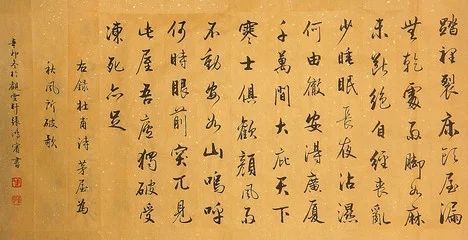 踏裡裂床頭屋漏
無乾處雨腳如麻
未斷絕自經喪亂
少睡眠長夜沾濕
何由徹安得廣廈
千萬間大庇天下
寒士俱歡顏風雨
不動安如山嗚呼
何時眼前突兀見
此屋吾廬獨破受
凍死亦足
右錄杜甫詩茅屋為
秋風所破歌
辛卯冬於雲軒張鴻書